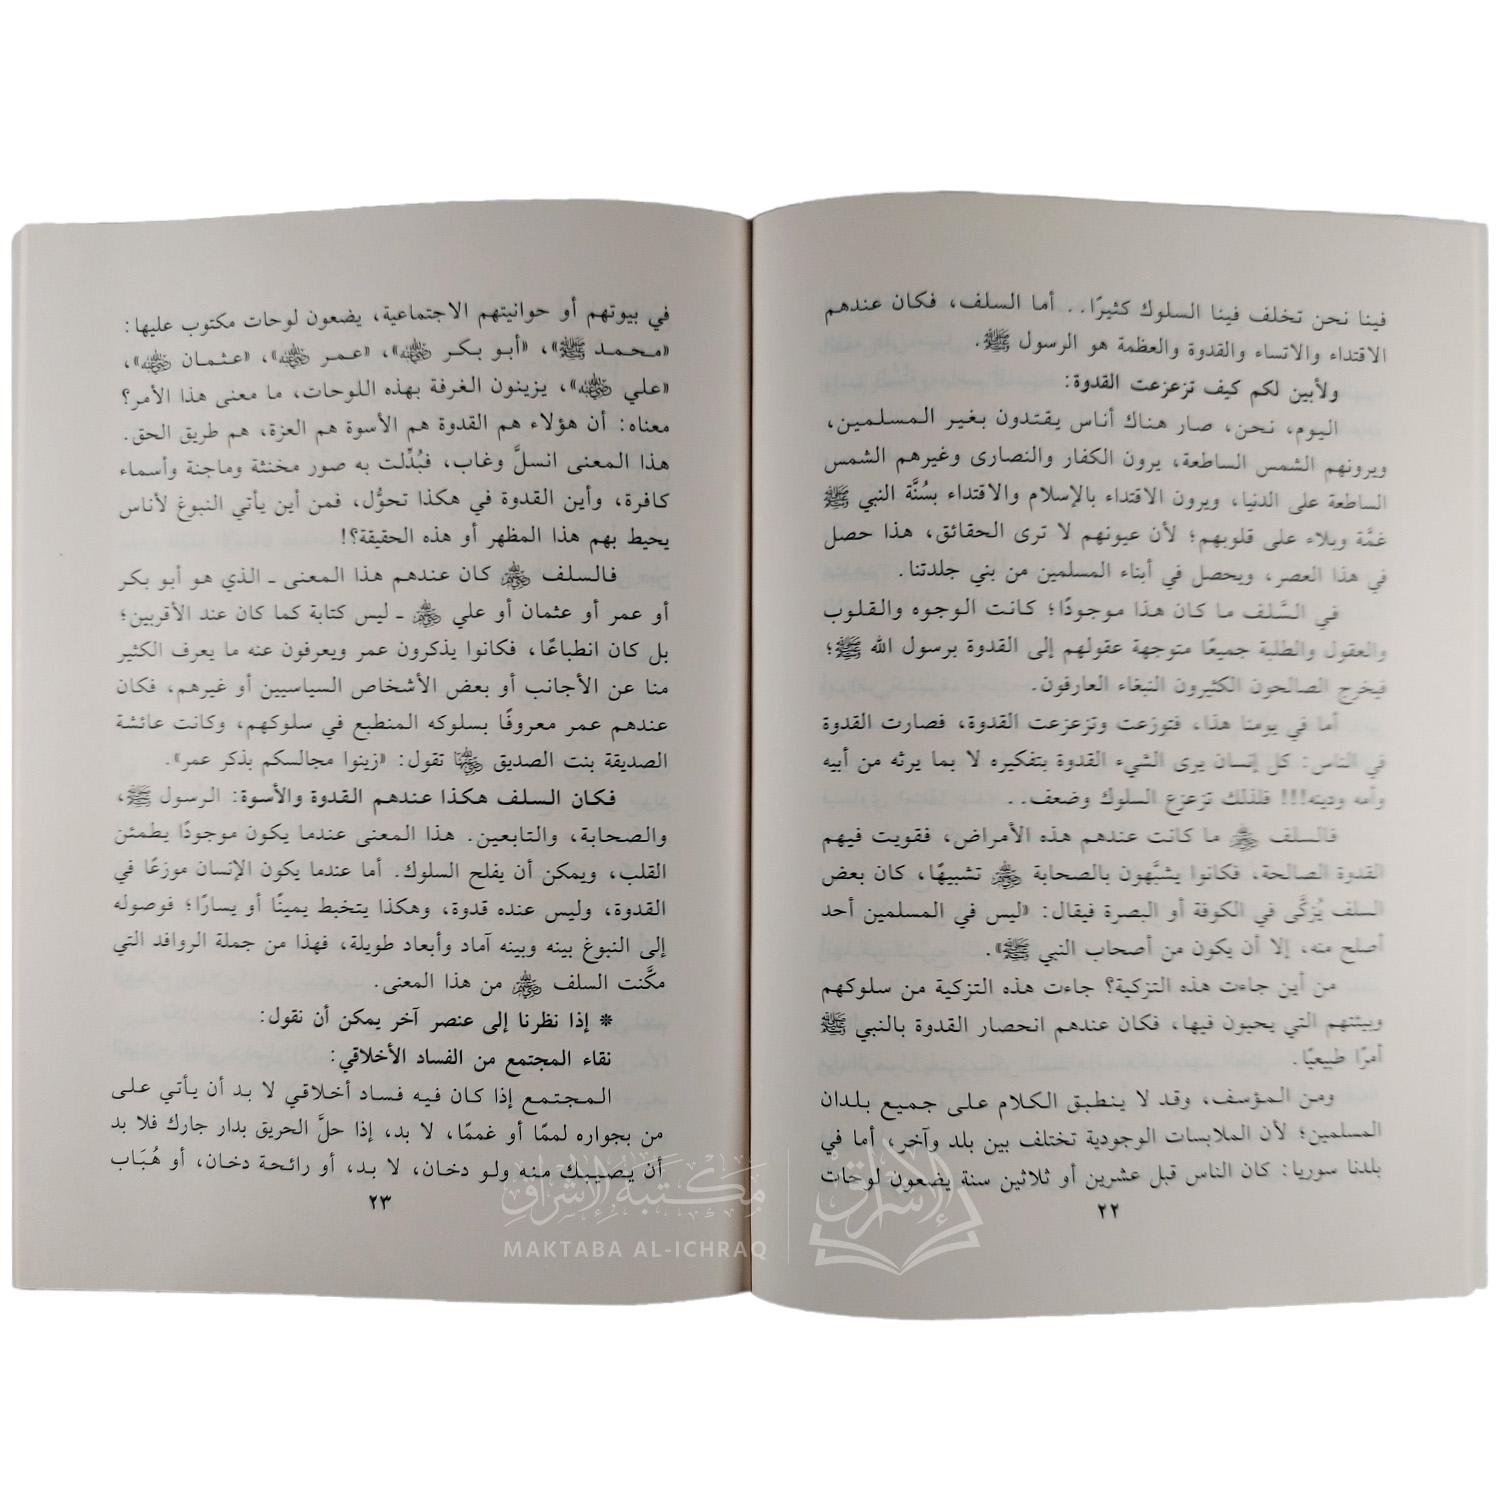 فينا نحن تخلف فينا السلوك كثيرًا.. أما السلف، فكان عندهم
الاقتداء والاتساء والقدوة والعظمة هو الرسول ﷺ.
ولأبين لكم كيف تزعزعت القدوة:
اليوم، نحن، صار هناك أناس يقتدون بغير المسلمين،
ويرونهم الشمس الساطعة، يرون الكفار والنصارى وغيرهم الشمس
الساطعة على الدنيا، ويرون الاقتداء بالإسلام والاقتداء بسُنَّة النبي ﷺ
غمَّة وبلاء على قلوبهم؛ لأن عيونهم لا ترى الحقائق، هذا حصل
في هذا العصر، ويحصل في أبناء المسلمين من بني جلدتنا.
في السَّلف ما كان هذا موجودًا؛ كانت الوجوه والقلوب
والعقول والطلبة جميعًا متوجهة عقولهم إلى القدوة برسول الله ﷺ؛
فيخرج الصالحون الكثيرون النبغاء العارفون.
أما في يومنا هذا، فتوزعت وتزعزعت القدوة، فصارت القدوة
في الناس: كل إنسان يرى الشيء القدوة بتفكيره لا بما يرثه من أبيه
وأمه ودينه!!! فلذلك تزعزع السلوك وضعف..
فالسلف ﵃ ما كانت عندهم هذه الأمراض، فقويت فيهم
القدوة الصالحة، فكانوا يشبَّهون بالصحابة ﵃ تشبيهًا، كان بعض
السلف يُزكَّى في الكوفة أو البصرة فيقال: «ليس في المسلمين أحد
أصلح منه، إلا أن يكون من أصحاب النبي ﷺ».
من أين جاءت هذه التزكية؟ جاءت هذه التزكية من سلوكهم
وبيئتهم التي يحيون فيها، فكان عندهم انحصار القدوة بالنبي ﷺ
أمرًا طبيعيًا.
ومن المؤسف، وقد لا ينطبق الكلام على جميع بلدان
المسلمين؛ لأن الملابسات الوجودية تختلف بين بلد وآخر، أما في
بلدنا سوريا: كان الناس قبل عشرين أو ثلاثين سنة يضعون لوحات
٢٢
في بيوتهم أو حوانيتهم الاجتماعية، يضعون لوحات مكتوب عليها:
«محمد ﷺ»، «أبو بكر ﵁»، «عمر ﵁»، «عثمان ﵁»،
«علي ﵁»، يزينون الغرفة بهذه اللوحات، ما معنى هذا الأمر؟
معناه: أن هؤلاء هم القدوة هم الأسوة هم العزة، هم طريق الحق.
هذا المعنى انسلَّ وغاب، فبُدِّلت به صور مخنثة وماجنة وأسماء
كافرة، وأين القدوة في هكذا تحوُّل، فمن أين يأتي النبوغ لأناس
يحيط بهم هذا المظهر أو هذه الحقيقة؟!
فالسلف ﵃ كان عندهم هذا المعنى ـ الذي هو أبو بكر
أو عمر أو عثمان أو علي ﵃ ـ ليس كتابة كما كان عند الأقربين؛
بل كان انطباعًا، فكانوا يذكرون عمر ويعرفون عنه ما يعرف الكثير
منا عن الأجانب أو بعض الأشخاص السياسيين أو غيرهم، فكان
عندهم عمر معروفًا بسلوكه المنطبع في سلوكهم، وكانت عائشة
الصديقة بنت الصديق ﵂ تقول: «زينوا مجالسكم بذكر عمر».
فكان السلف هكذا عندهم القدوة والأسوة: الرسول ﷺ،
والصحابة، والتابعين. هذا المعنى عندما يكون موجودًا يطمئن
القلب، ويمكن أن يفلح السلوك. أما عندما يكون الإنسان موزعًا في
القدوة، وليس عنده قدوة، وهكذا يتخبط يمينًا أو يسارًا؛ فوصوله
إلى النبوغ بينه وبينه آماد وأبعاد طويلة، فهذا من جملة الروافد التي
مكَّنت السلف ﵃ من هذا المعنى.
* إذا نظرنا إلى عنصر آخر يمكن أن نقول:
نقاء المجتمع من الفساد الأخلاقي:
المجتمع إذا كان فيه فساد أخلاقي لا بد أن يأتي على
من بجواره لممًا أو غممًا، لا بد، إذا حلَّ الحريق بدار جارك فلا بد
أن يُصيبك منه ولو دخان، لا بد، أو رائحة دخان، أو هُبَاب
٢٣
مكتبة الإشراق
MAKTABA AL-ICHRAQ
الإشراق